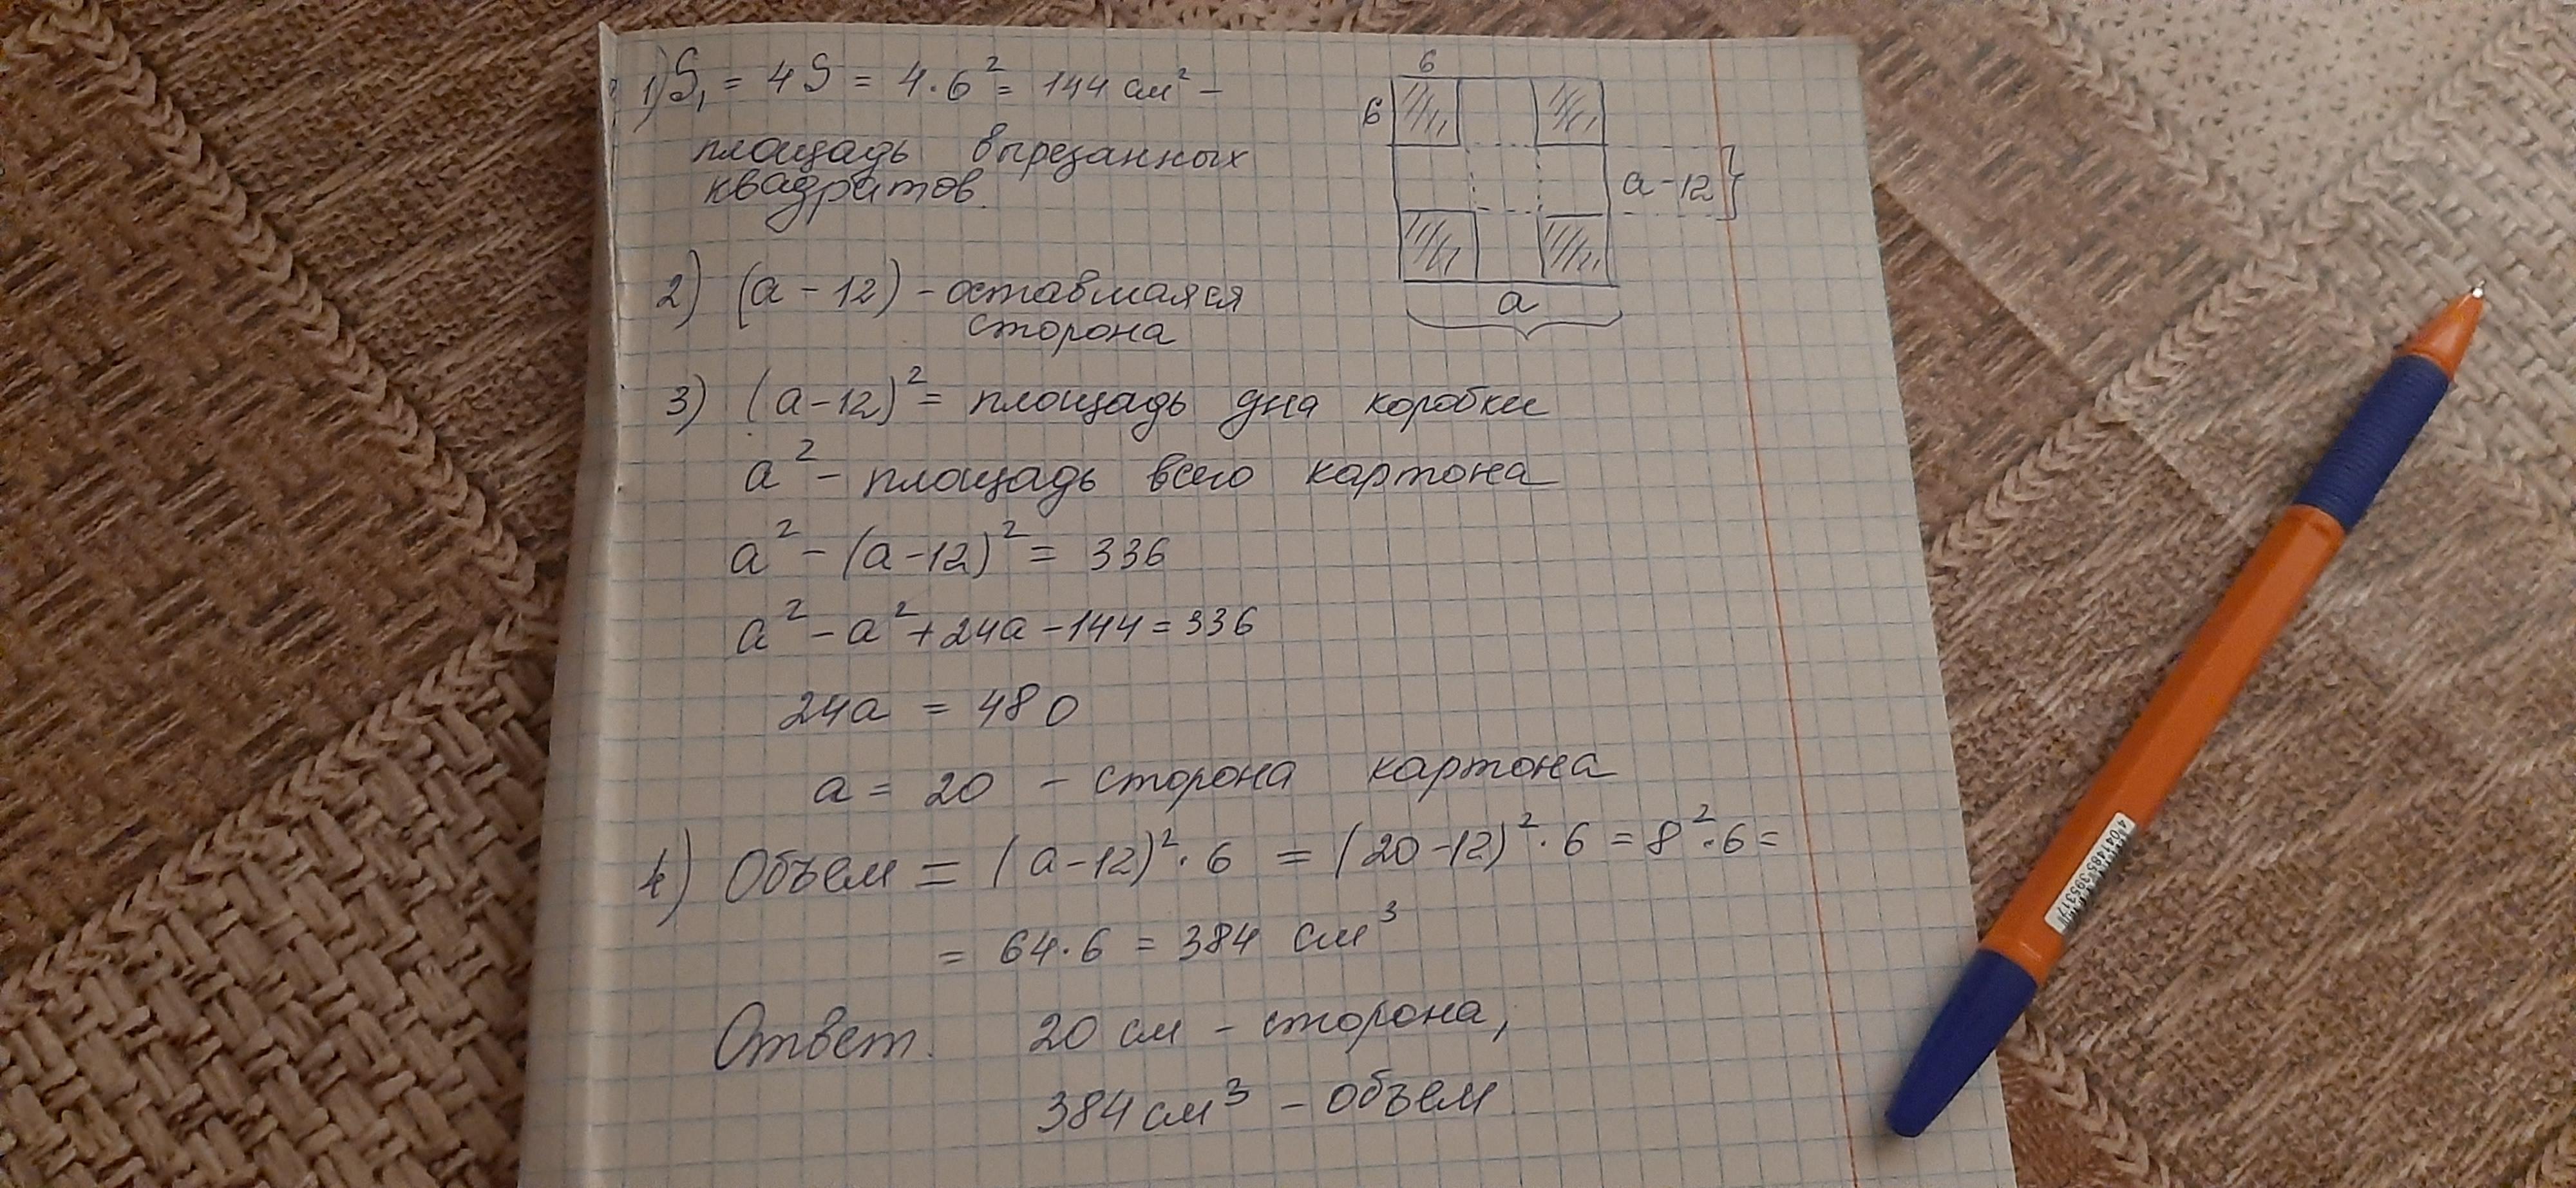 1) S₁ = 4S = 4·6² = 144 см² –
площадь вырезанных
квадратов.
6
6
a-12
a
2) (a-12) - оставшаяся
сторона
3) (a-12)² = площадь дна коробки
a² - площадь всего картона
a² - (a-12)² = 336
a² - a² + 24a - 144 = 336
24a = 480
a = 20 - сторона картона
4) Объем = (a-12)²·6 = (20-12)²·6 = 8²·6 =
= 64·6 = 384 см³
Ответ. 20 см - сторона,
384 см³ - объем
4 041485 395317